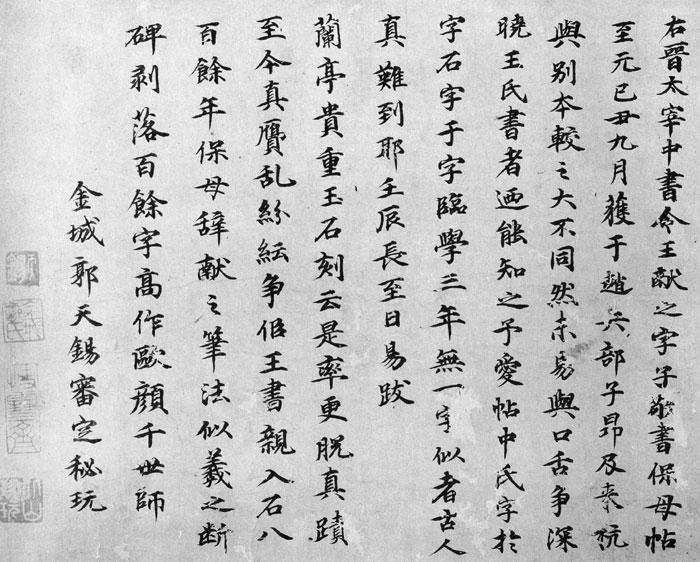 右晉太宰中書令王献之字子敬書保母帖
至元己丑九月獲于趙兵部子昂及来杭
與别夲較之大不同然未易與口舌争深
曉王氏書者廼能知之予愛帖中氏字於
字石字于字臨學三年無一字似者古人
真難到耶壬辰長至日易跋
蘭亭貴重玉石刻云是率更脱真蹟
至今真贗乱紛紜争似王書親入石八
百餘年保母辞献之筆法似羲之断
碑剥落百餘字髙作歐顔千世師
金城郭天錫審定秘玩